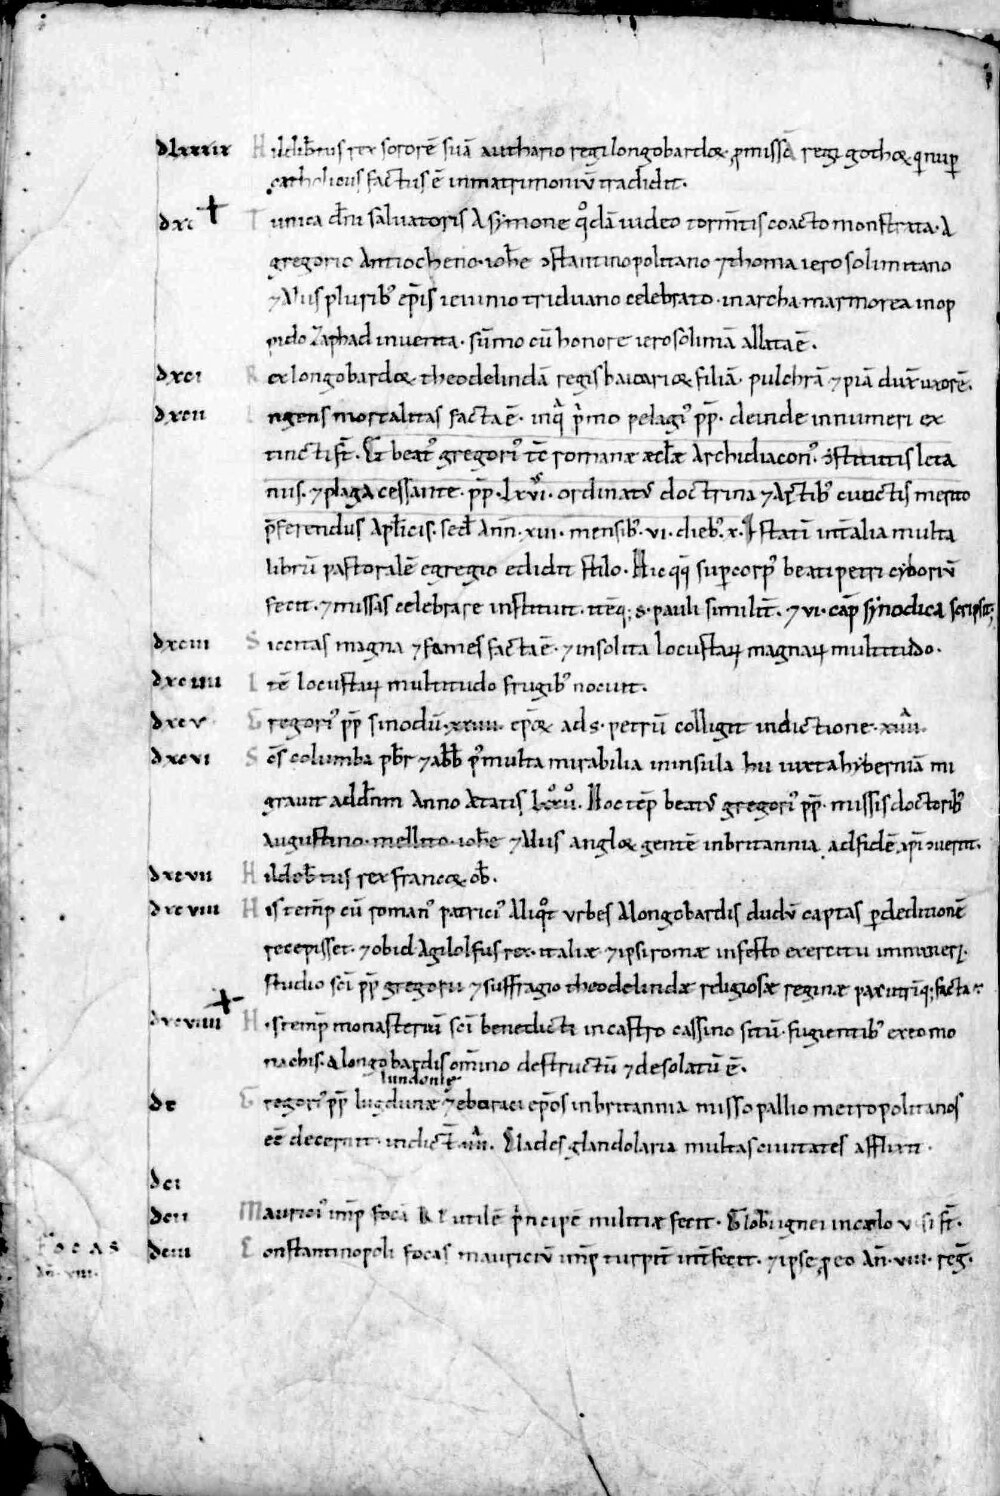 dlxxxix Hildibtus rex sororē suā authario regi longobardoꝝ ꝓmissā regi gothoꝝ qi nup
catholicus factus ē in matrimoniū tradidit.
dxc Tunica dn̄i saluatoris a symone qodā iudeo torm̄tis coacto monstrata. a
gregorio antiocheno. ioh̄e ↄstantinopolitano ⁊ thoma ierosolimitano
⁊ aliis plurib; ep̄is ieiunio triduano celebrato. in archa marmorea in op
pido Zaphad inuenta. sūmo cū honore ierosolimā allata ē.
dxci Rex longobardoꝝ theodelindā regis baioarioꝝ filiā. pulchrā ⁊ piā dux̄ uxorē.
dxcii Ingens mortalitas facta ē. inqa pimo pelagi' pp̄. deinde innumeri ex
tincti st̄. Et beat' gregori' tc̄ romanæ æcl̄æ archidiacon'. ↄstitutis leta
niis. ⁊ plaga cessante. pp̄. lxvi. ordinat' doctrina ⁊ actib; cunctis merito
p̄ferendus ap̄licis. sed̄ ann̄. xiii. mensib;. vi. dieb;. x. Iste int̄ alia multa
librū pastoralē egregio edidit stilo. Hic qq; sup corp' beati petri cyboriū
fecit. ⁊ missas celebrare instituit. itēq; s. pauli similit̄. ⁊ vi. cap̄ synodica scripsit.
dxciii Siccitas magna ⁊ fames facta ē. ⁊ insolita locustaꝝ magnaꝝ multitudo.
dxciiii Itē locustaꝝ multitudo frugib; nocuit.
dxcv Gregori' pp̄ sinodū. xxiiii. ep̄oꝝ ad s. petrū colligit indictione. xiiia.
dxcvi Sc̄s columba pb̄r ⁊ abb̄ p' multa mirabilia in insula hu iuxta hyberniā mi
grauit ad dn̄m anno ætatis lxxvo. Hoc tēp beat' gregori' pp̄. missis doctorib;
augustino. mellito. ioh̄e ⁊ aliis angloꝝ gentē in britannia. ad fidē xp̄i ↄuertit.
dxcvii Hildeb̄tus rex francoꝝ ob̄.
dxcviii His temp̄ cū roman' patrici' aliqot urbes a longobardis dudū captas p deditionē
recepisset. ⁊ ob id agilolfus rex. italiæ ⁊ ipsi romæ infesto exercitu immineret.
studio sc̄i pp̄ gregorii ⁊ suffragio theodelindæ religiosæ reginæ pax utriq; facta ē.
dxcviiii His temp̄ monasteriū sc̄i benedicti in castro cassino sitū. fugientib; ex eo mo
nachis. a longobardis om̄ino destructū ⁊ desolatū ē.
lundoniæ
dc Gregori' pp̄ lugdunæ ⁊ eboraci ep̄os in britannia misso pallio metropolitanos
eē decernit. indict̄. iiiia. Clades glandolaria multas ciuitates afflixit.
dci
dcii Maurici' imp̄ focā utilē pincipē militiæ fecit. Globi ignei in cælo visi st̄.
dciii Constantinopoli focas mauriciū imp̄ turpit̄ int̄fecit. ⁊ ipse p eo an̄. viii. reḡ.
FOCAS
an̄. viii.